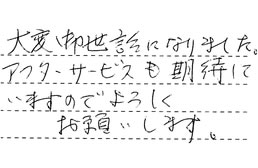 大変御世話になりました。
アフターサービスも期待して
いますのでよろしく
お願いします。